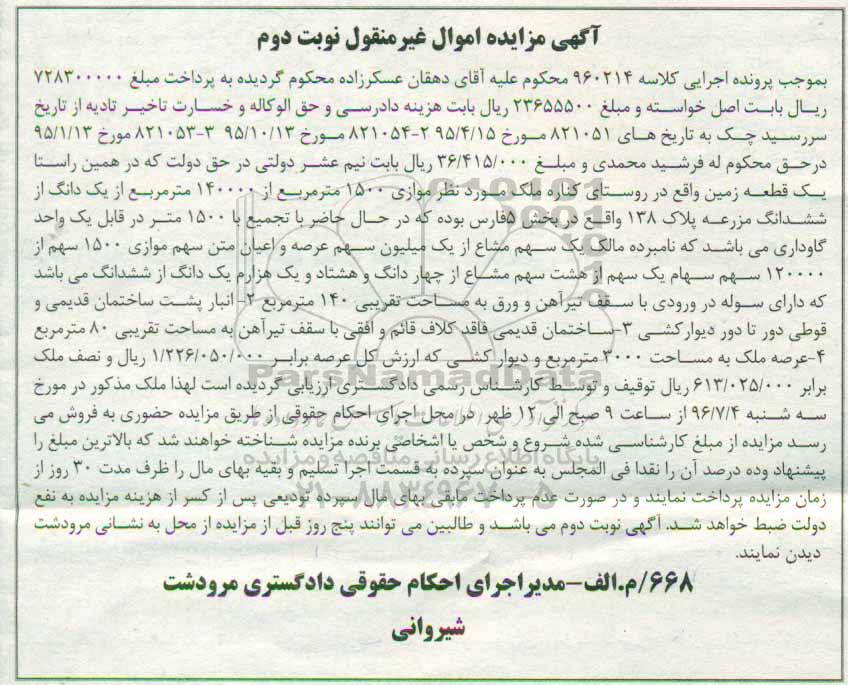 آگهی مزایده اموال غیرمنقول نوبت دوم
بموجب پرونده اجرایی کلاسه ۹۶۰۲۱۴ محکوم علیه آقای دهقان عسکرزاده محکوم گردیده به پرداخت مبلغ ۷۲۸۳۰۰۰۰۰
ریال بابت اصل خواسته و مبلغ ۲۳۶۵۵۵۰۰ ریال بابت هزینه دادرسی و حق الوکاله و خسارت تاخیر تادیه از تاریخ
سررسید چک به تاریخ های ۸۲۱۰۵۱ مورخ ۹۵/۴/۱۵ ۲-۸۲۱۰۵۴ مورخ ۹۵/۱۰/۱۳ ۳-۸۲۱۰۵۳ مورخ ۹۵/۱/۱۳
درحق محکوم له فرشید محمدی و مبلغ ۳۶/۴۱۵/۰۰۰ ریال بابت نیم عشر دولتی در حق دولت که در همین راستا
یک قطعه زمین واقع در روستای کناره ملک مورد نظر موازی ۱۵۰۰ مترمربع از ۱۴۰۰۰۰ مترمربع از یک دانگ از
ششدانگ مزرعه پلاک ۱۳۸ واقع در بخش ۵فارس بوده که در حال حاضر با تجمیع با ۱۵۰۰ متر در قابل یک واحد
گاوداری می باشد که نامبرده مالک یک سهم مشاع از یک میلیون سهم عرصه و اعیان متن سهم موازی ۱۵۰۰ سهم از
۱۲۰۰۰۰ سهم سهام یک سهم از هشت سهم مشاع از چهار دانگ و هشتاد و یک هزارم یک دانگ از ششدانگ می باشد
که دارای سوله در ورودی با سقف تیرآهن و ورق به مساحت تقریبی ۱۴۰ مترمربع ۲- انبار پشت ساختمان قدیمی و
قوطی دور تا دور دیوارکشی ۳-ساختمان قدیمی فاقد کلاف قائم و افقی با سقف تیرآهن به مساحت تقریبی ۸۰ مترمربع
۴-عرصه ملک به مساحت ۳۰۰۰ مترمربع و دیوار کشی که ارزش کل عرصه برابر ۱/۲۲۶/۰۵۰/۰۰۰ ریال و نصف ملک
برابر ۶۱۳/۰۲۵/۰۰۰ ریال توقیف و توسط کارشناس رسمی دادگستری ارزیابی گردیده است لهذا ملک مذکور در مورخ
سه شنبه ۹۶/۷/۴ از ساعت ۹ صبح الی ۱۲ ظهر در محل اجرای احکام حقوقی از طریق مزایده حضوری به فروش می
رسد مزایده از مبلغ کارشناسی شده شروع و شخص یا اشخاصی برنده مزایده شناخته خواهند شد که بالاترین مبلغ را
پیشنهاد وده درصد آن را نقدا فی المجلس به عنوان سپرده به قسمت اجرا تسلیم و بقیه بهای مال را ظرف مدت ۳۰ روز از
زمان مزایده پرداخت نمایند و در صورت عدم پرداخت مابقی بهای مال سپرده تودیعی پس از کسر از هزینه مزایده به نفع
دولت ضبط خواهد شد. آگهی نوبت دوم می باشد و طالبین می توانند پنج روز قبل از مزایده از محل به نشانی مرودشت
دیدن نمایند.
۶۶۸/م.الف-مدیراجرای احکام حقوقی دادگستری مرودشت
شیروانی
ParsNamadData
پایگاه اطلاع رسانی مناقصه و مزایده
۰۲۱-۸۸۳۴۹۶۷۰-۵